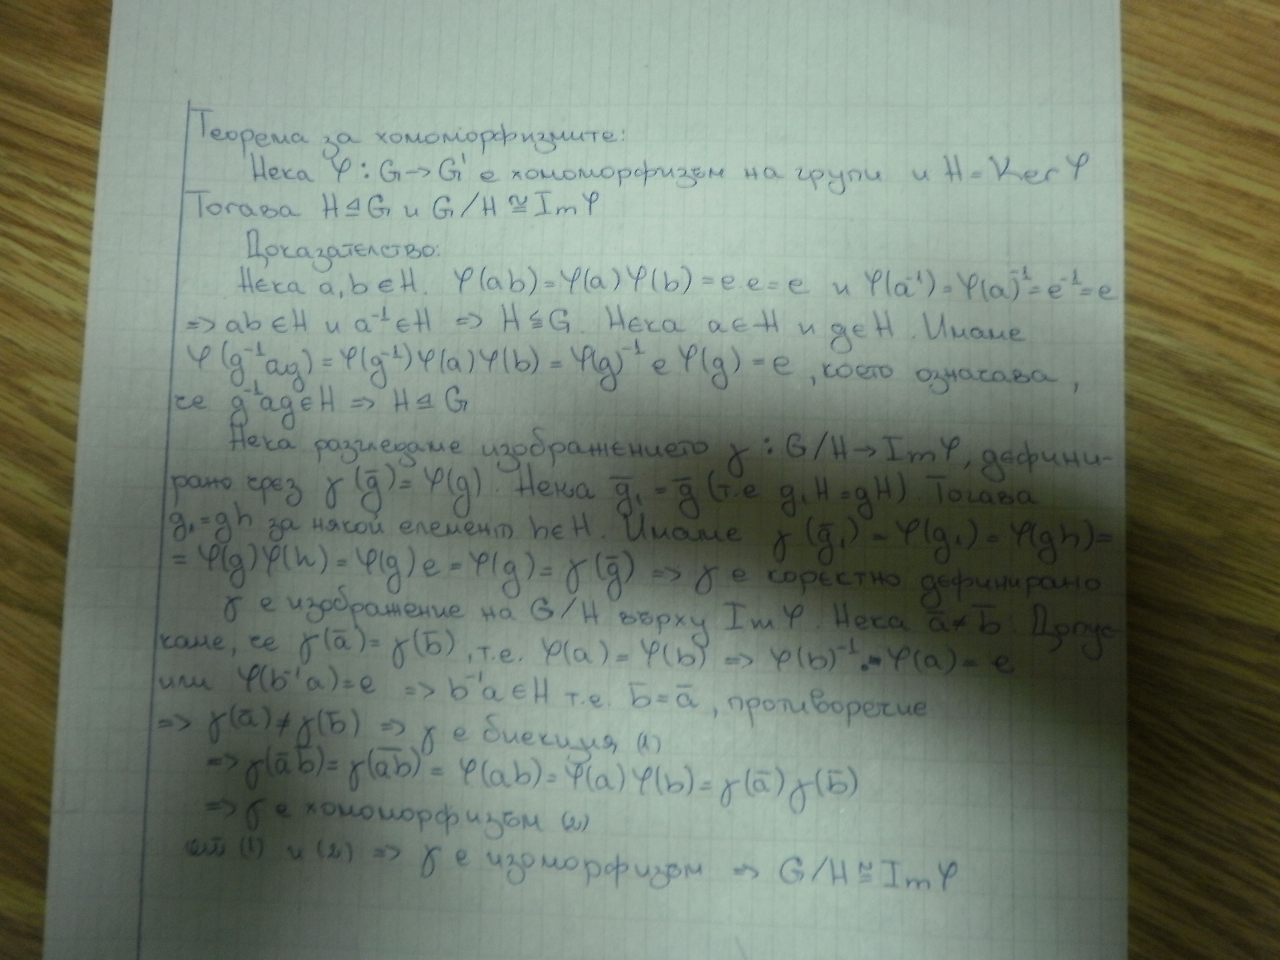 Теорема за хомоморфизмите:
Нека φ : G → G' е хомоморфизъм на групи и H = Ker φ
Тогава H ⊴ G и G/H ≅ Im φ
Доказателство:
Нека a, b ∈ H. φ(ab) = φ(a) φ(b) = e.e = e и φ(a⁻¹) = φ(a)⁻¹ = e⁻¹ = e
=> ab ∈ H и a⁻¹ ∈ H => H ≤ G. Нека a ∈ H и g ∈ H. Имаме
φ(g⁻¹ag) = φ(g⁻¹) φ(a) φ(b) = φ(g)⁻¹ e φ(g) = e, което означава,
че g⁻¹ag ∈ H => H ⊴ G
Нека разгледаме изображението γ : G/H → Im φ, дефини-
рано чрез γ(ḡ) = φ(g). Нека ḡ₁ = ḡ (т.е g₁H = gH). Тогава
g₁ = gh за някой елемент h ∈ H. Имаме γ(ḡ₁) = φ(g₁) = φ(gh) =
= φ(g) φ(h) = φ(g) e = φ(g) = γ(ḡ) => γ е коректно дефинирано
γ е изображение на G/H върху Im φ. Нека ā ≠ b̄. Допус-
каме, че γ(ā) = γ(b̄), т.е. φ(a) = φ(b) => φ(b)⁻¹.φ(a) = e
или φ(b⁻¹a) = e => b⁻¹a ∈ H т.е. b̄ = ā, противоречие
=> γ(ā) ≠ γ(b̄) => γ е биекция (1)
=> γ(ā b̄) = γ(a̅b̅) = φ(ab) = φ(a) φ(b) = γ(ā) γ(b̄)
=> γ е хомоморфизъм (2)
от (1) и (2) => γ е изоморфизъм => G/H ≅ Im φ